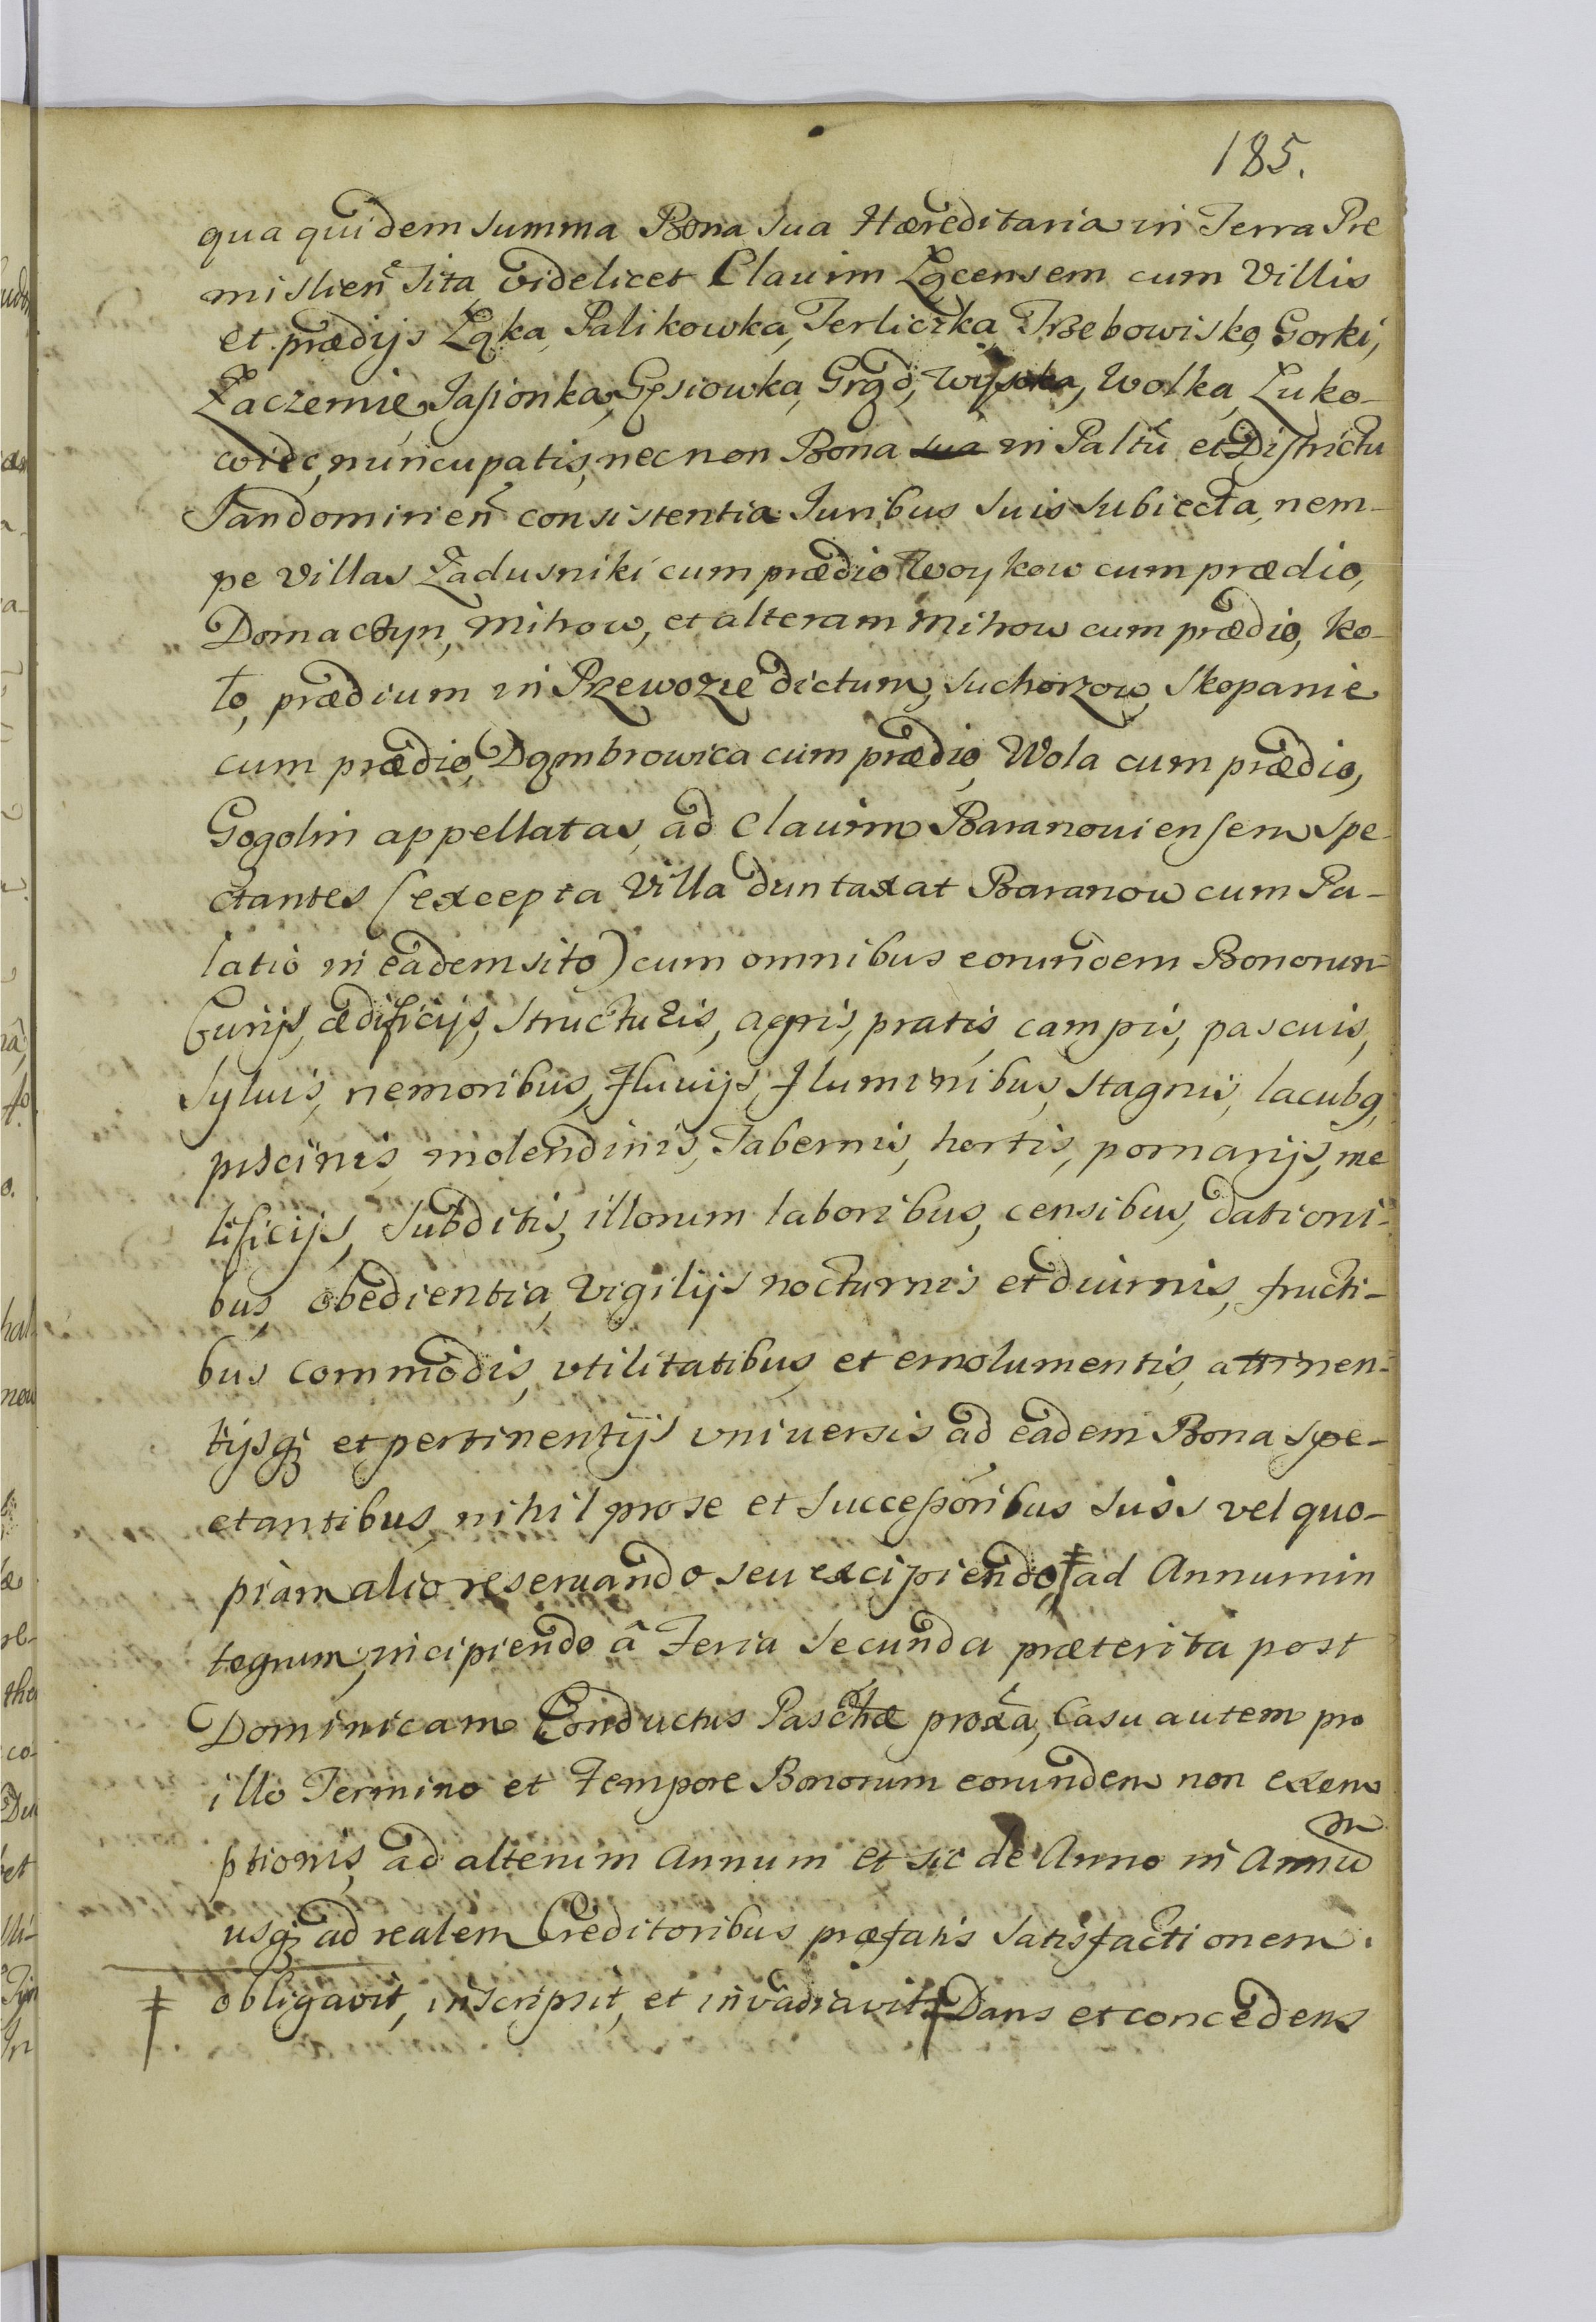 185.
qua quidem summa Bona sua Hæreditaria in Terra Pre
mislien̄ sita videlicet Clauim Łącensem cum Villis
et prædijs Łąka, Palikowka, Terliczka, Trzebowisko, Gorki,
Zaczernie, Jasionka, Gęsiowka, Grąd, Wysoka, Wolka, Łuko-
wiec, nuncupatis, nec non Bona sua in Paltū et Districtu
Sandomirien̄ consistentia Juribus suis subiecta, nem-
pe Villas Zadusniki cum prædio Woykow cum prædio,
Domactyn, Mihow, et alteram Mihow cum prædio, Ko-
ło, prædium in Przewozie dictum, Suchorzow, Skopanie
cum prædio, Dąmbrowica cum prædio, Wola cum prædio,
Gogolin appellatas, ad Clauim Baranouiensem spe-
ctantes (excepta Villa duntaxat Baranow cum Pa-
latio in eadem sito) cum omnibus eorundem Bonorum
Curijs, ædificijs, structuris, agris, pratis, campis, pascuis,
syluis, nemoribus, fluuijs, fluminibus, stagnis, lacubq,
piscinis, molendinis, Tabernis, hortis, pomarijs, me
lificijs, subditis, illorum laboribus, censibus, dationi-
bus, obedientia, vigilijs nocturnis et diurnis, fructi-
bus commodis, vtilitatibus et emolumentis, attinen-
tijsq; et pertinentijs vniuersis ad eadem Bona spe-
ctantibus, nihil pro se et successoribus suis vel quo-
piam alio reseruando seu excipiendo, ‡ ad Annum in
tegrum, incipiendo â Feria secunda præterita post
Dominicam Conductus Paschæ proxā, Casu autem pro
illo Termino et tempore Bonorum eorundem non exem
ptionis, ad alterum Annum et sic de Anno in Annū
usq; ad realem Creditoribus præfatis satisfactionem.
‡ obligavit, inscripsit, et invadiavit ‡ Dans et concedens